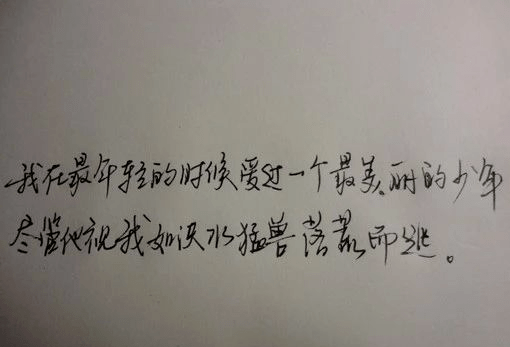 我在最年轻的时候爱过一个最美丽的少年
尽管他视我如洪水猛兽落荒而逃。